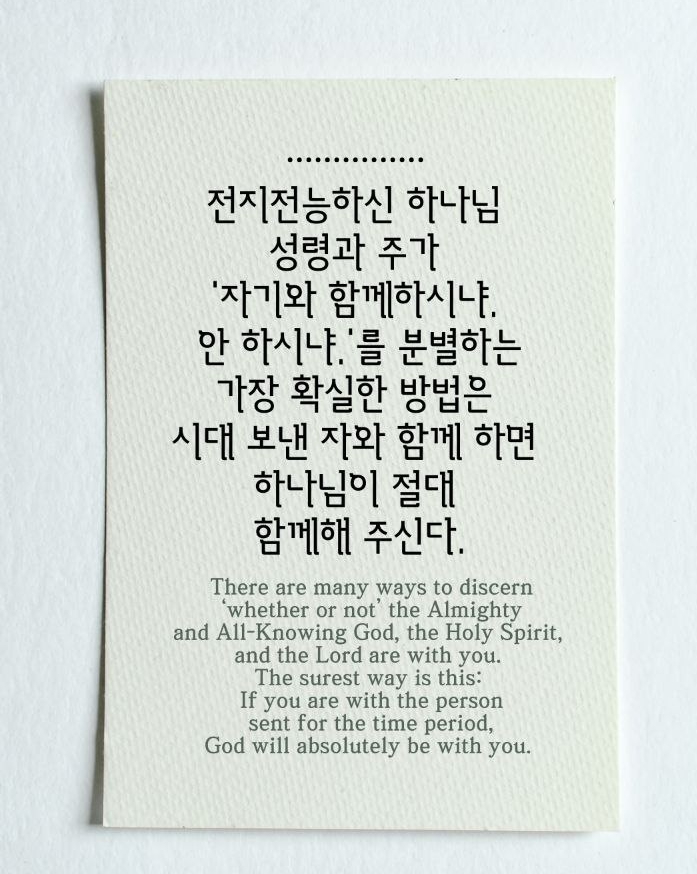 ...............
전지전능하신 하나님
성령과 주가
'자기와 함께하시냐.
안 하시냐.'를 분별하는
가장 확실한 방법은
시대 보낸 자와 함께 하면
하나님이 절대
함께해 주신다.
There are many ways to discern
‘whether or not’ the Almighty
and All-Knowing God, the Holy Spirit,
and the Lord are with you.
The surest way is this:
If you are with the person
sent for the time period,
God will absolutely be with you.